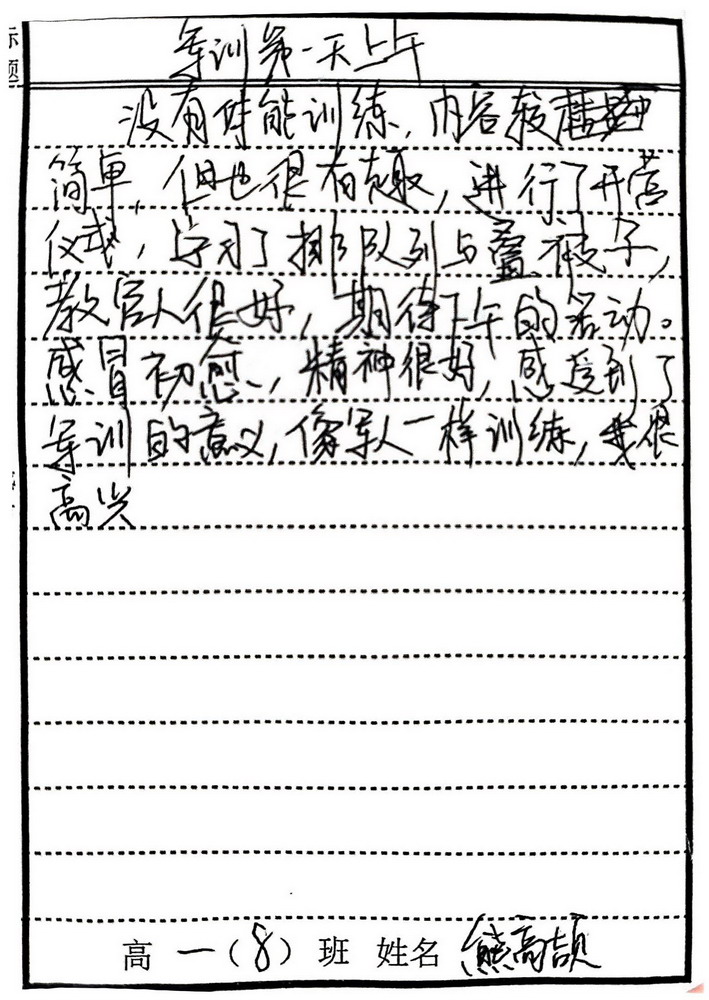 标题
军训第一天上午
没有体能训练，内容较
简单，但也很有趣，进行了开营
仪式，学习了排队列与叠被子，
教官人很好，期待下午的活动。
感冒初愈，精神很好，感受到了
军训的意义，像军人一样训练，我很
高兴
高一（8）班 姓名 熊高颉